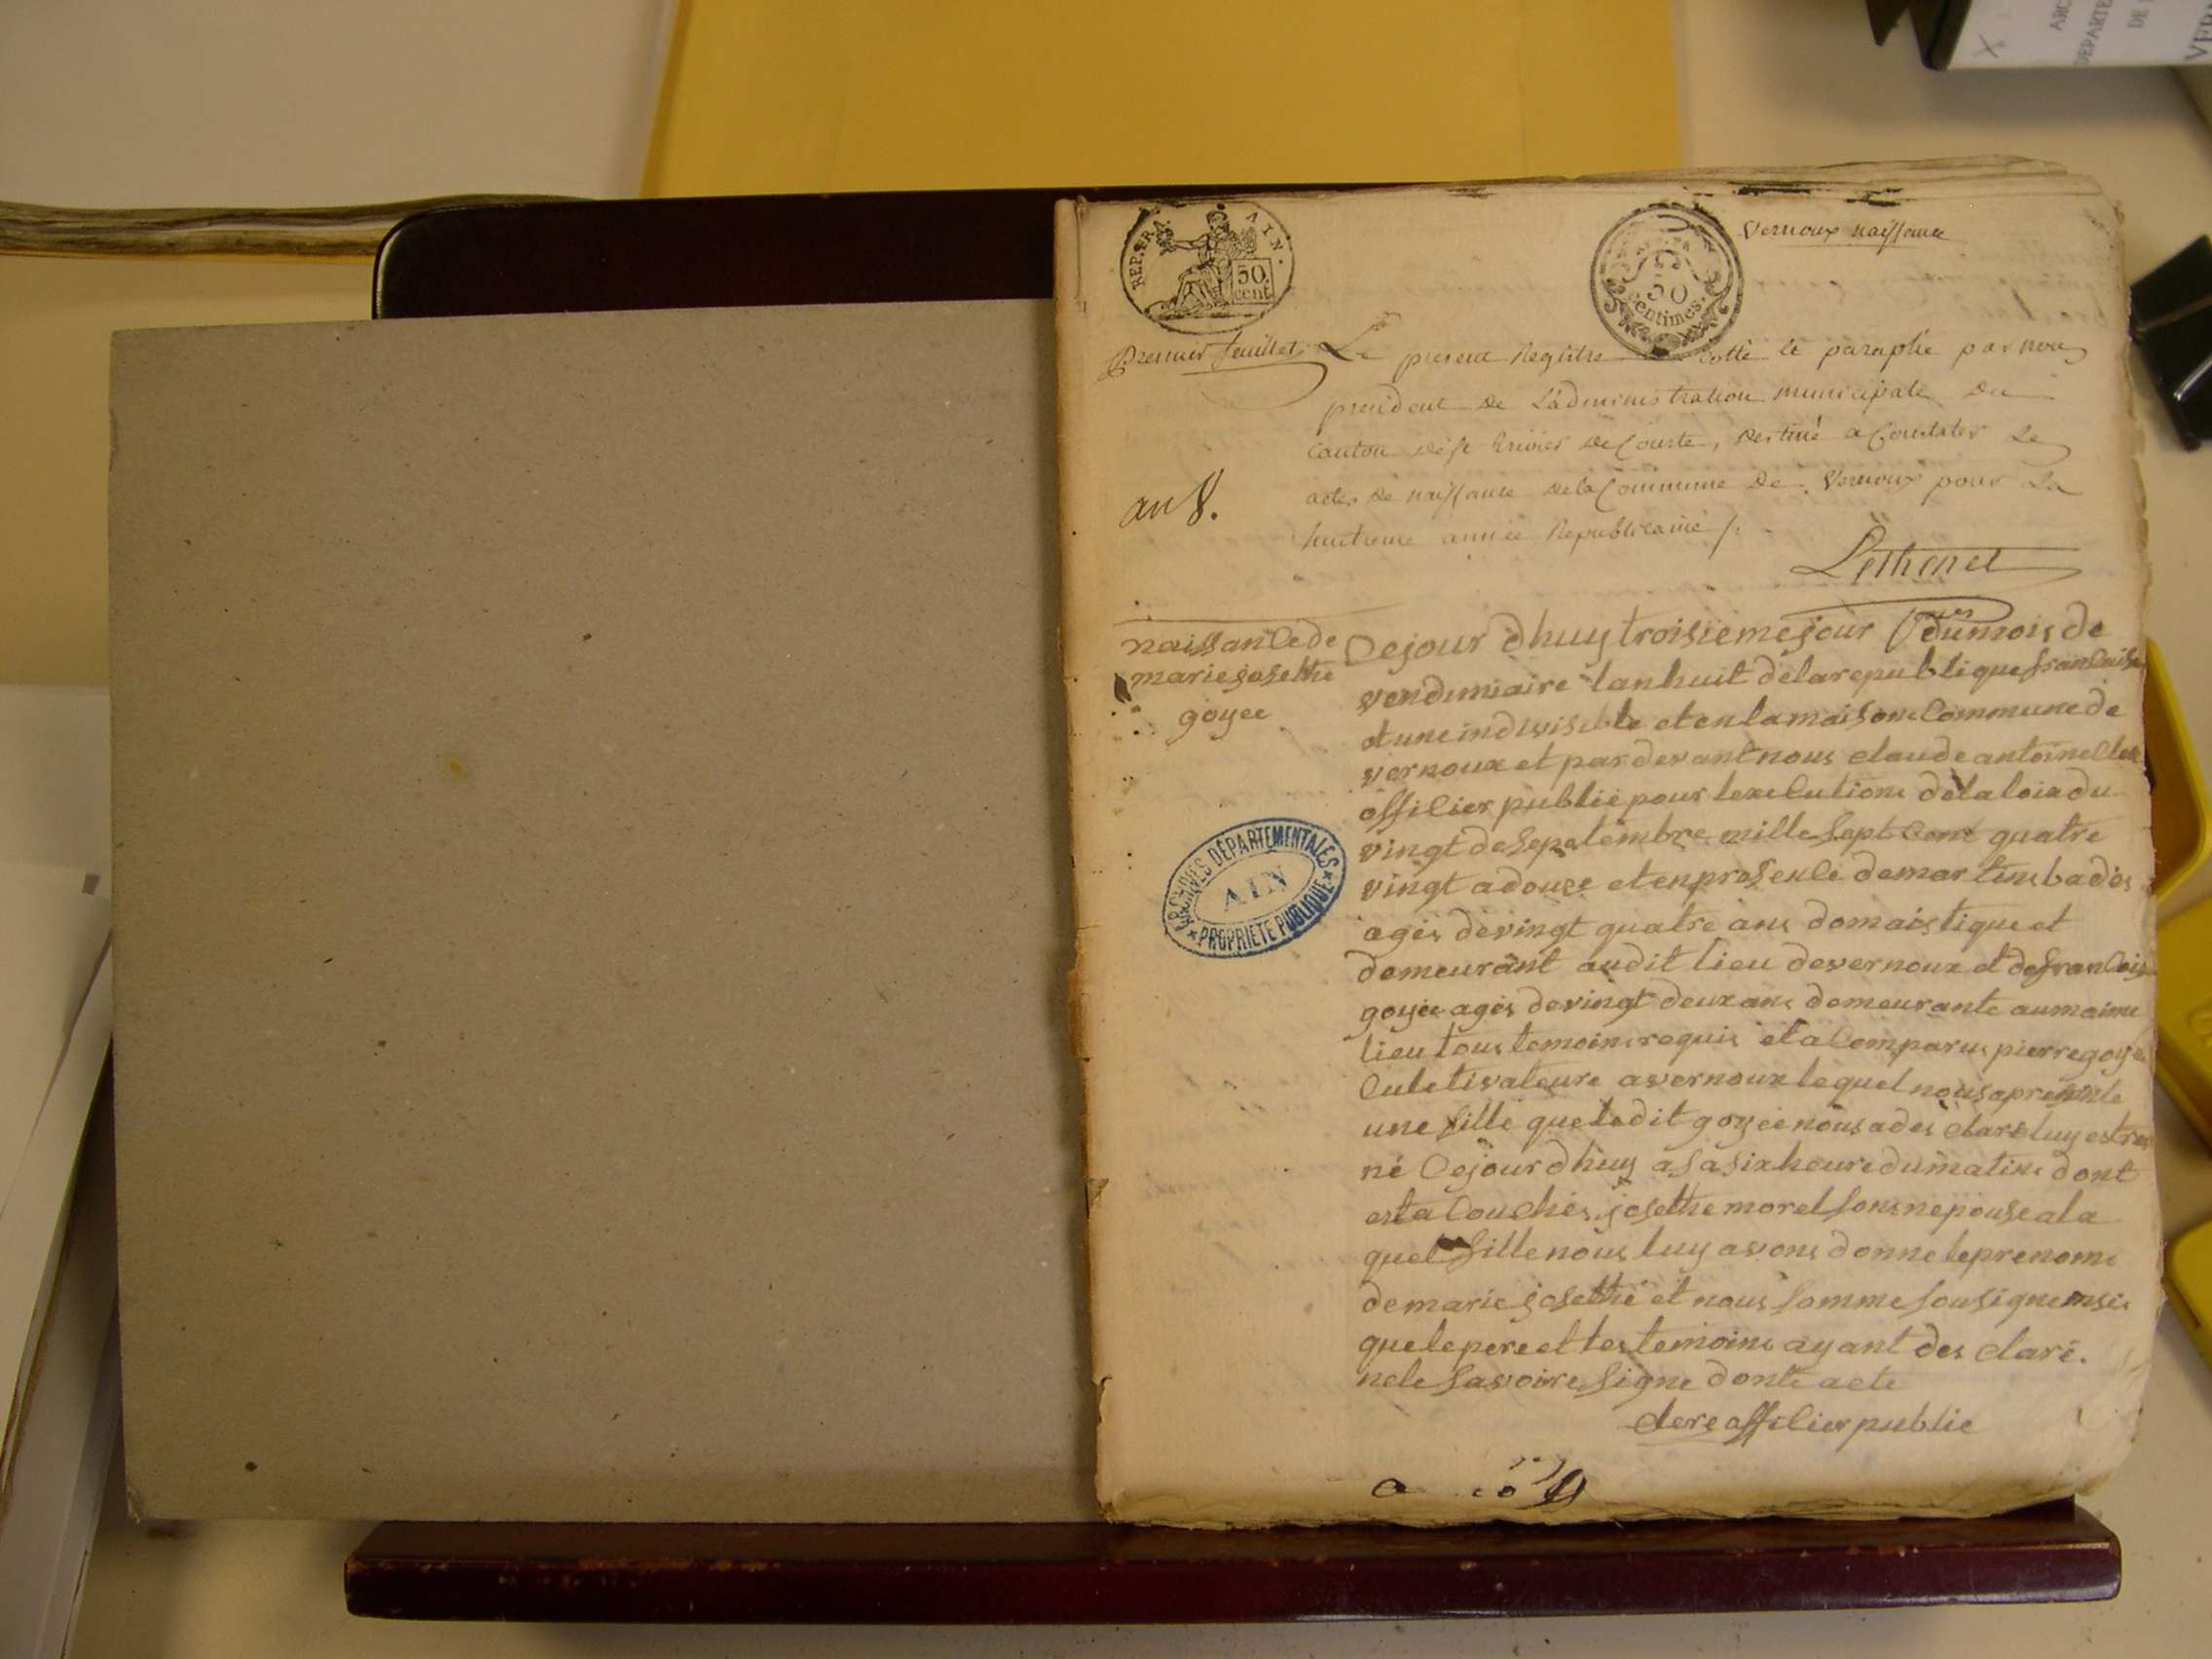 ARC
DEPARTE
DE
VER
REP. FRA.
AIN.
50
cent.
50
centimes.
Vernoux naissance
Premier feuillet
Le present Registre Cotté et paraphé par nous
president de L'administration municipale du
Canton de st trivier de Courte, destiné a Constater Les
actes de naissance de la Commune de Vernoux pour La
huitieme année Republicaine /.
an 8.
Lethenet
naissance de
marie josethe
goyee
Ce jour dhuy troisieme jour du mois de
vendimiaire lan huit de la republique francaise
et une indivisible et en la maisone Commune de
vernoux et par devant nous claude antoine Clere
officier publie pour lexecutione de la loix du
vingt de sepetembre mille sept Cent quatre
vingt a douze et en presence de martine bades
ages de vingt quatre ans domaistique et
demeurant audit lieu de vernoux et de francois
goyee ages de vingt deux ans demeurante au maime
lieu tous temoins requis et a Comparus pierre goyee
Culetivateure a vernoux lequel nous a presente
une fille que ledit goyee nous a des clare luy estre
né Ce jour dhuy a sa six heure du matine dont
est a Couches josethe morel sonne pouse a la
quel fille nous luy avons donne le prenome
de marie josethe et nous somme sousigne
que le pere et les temoins ayant des claré.
ne le savoire signe donte acte
clere officier publie
ARCHIVES DÉPARTEMENTALES
AIN
* PROPRIÉTÉ PUBLIQUE *